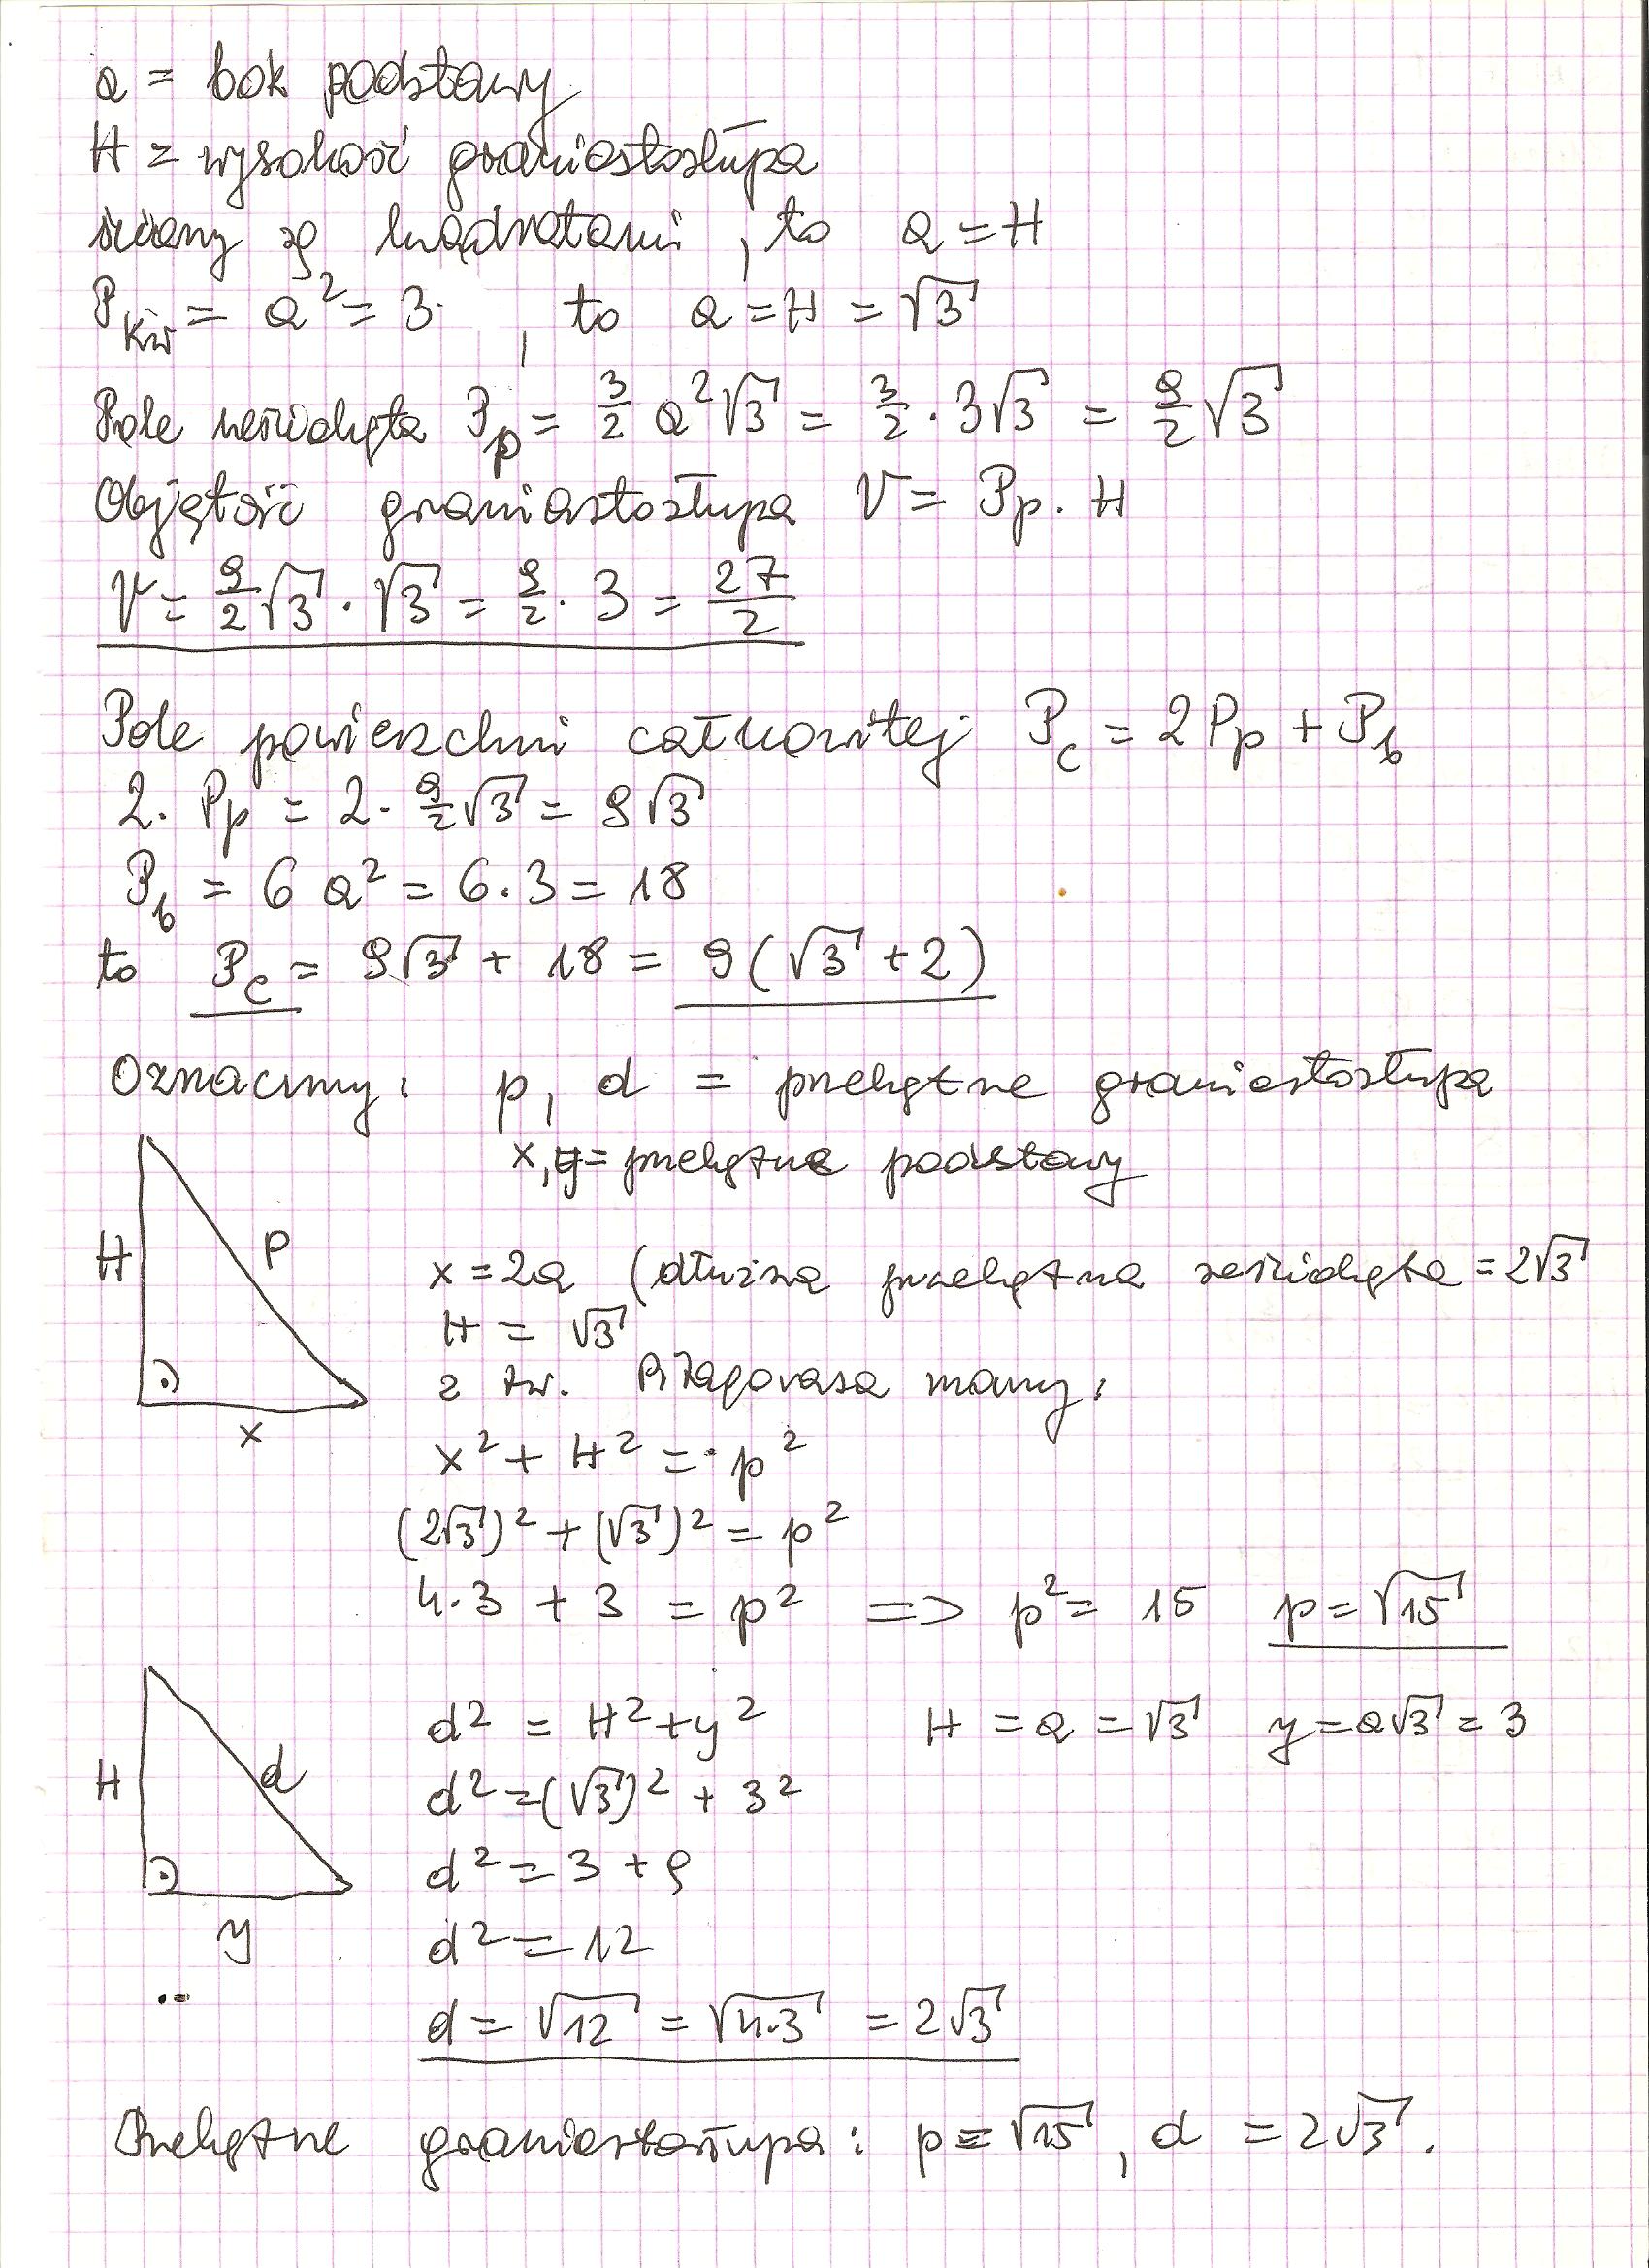 a = bok podstawy
H = wysokość graniastosłupa
ściany są kwadratami, to a = H
P_kw = a² = 3, to a = H = √3
Pole sześciokąta P_p = 3/2 a²√3 = 3/2 · 3√3 = 9/2 √3
Objętość graniastosłupa V = P_p · H
V = 9/2 √3 · √3 = 9/2 · 3 = 27/2
Pole powierzchni całkowitej P_c = 2P_p + P_b
2 · P_p = 2 · 9/2 √3 = 9√3
P_b = 6a² = 6 · 3 = 18
to P_c = 9√3 + 18 = 9(√3 + 2)
Oznaczmy: p, d = przekątne graniastosłupa
x, y = przekątne podstawy
H
p
x
x = 2a (dłuższa przekątna sześciokąta = 2√3
H = √3
z tw. Pitagorasa mamy:
x² + H² = p²
(2√3)² + (√3)² = p²
4·3 + 3 = p² => p² = 15 p = √15
H
d
y
d² = H² + y² H = a = √3 y = a√3 = 3
d² = (√3)² + 3²
d² = 3 + 9
d² = 12
d = √12 = √4·3 = 2√3
Przekątne graniastosłupa: p = √15, d = 2√3.